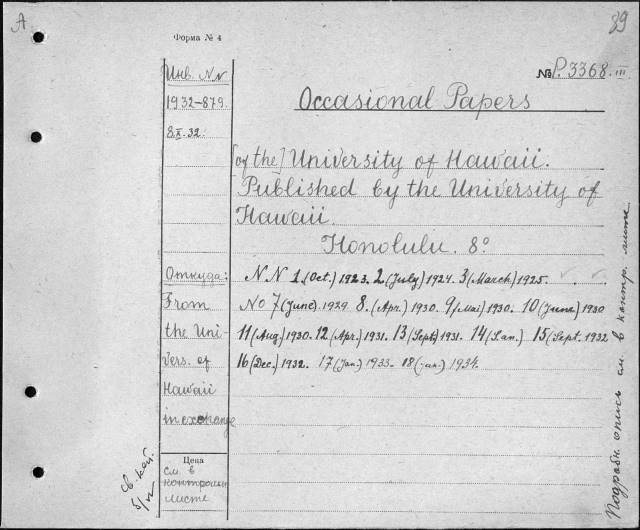 A
89
Форма № 4
Инв. NN
1932-879.
8/X.32.
№ P.3368.III
Occasional Papers
[of the] University of Hawaii.
Published by the University of
Hawaii.
Honolulu. 8°
Откуда:
From
the Uni-
vers. of
Hawaii
in exchange
NN 1.(Oct.) 1923. 2(July) 1924. 3(March) 1925.
No 7(June) 1929. 8.(Apr.) 1930. 9(Mai) 1930. 10(June) 1930
11(Aug) 1930. 12(Apr.) 1931. 13(Sept) 1931. 14(Jan.) 15(Sept. 1932
16(Dec.) 1932. 17(Jan.) 1933. 18(Jun.) 1934.
Цена
см. в
контрольн
листе
св. кат.
б/ч
Подробн опись см. в контр. листе